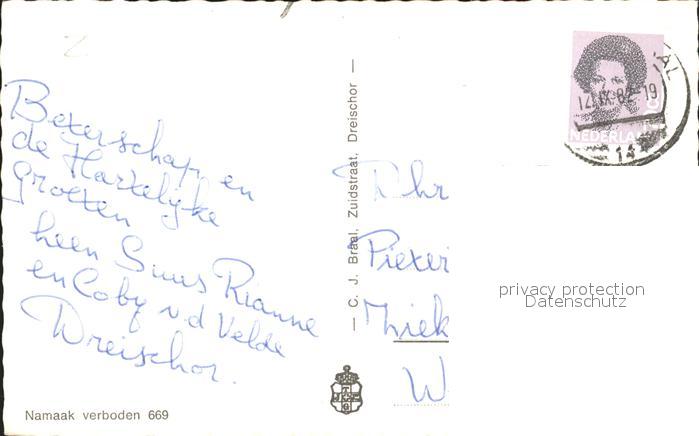 Beterschap en
de Hartelijke
groeten
Leen Suus Rianne
en Coby v.d Velde
Dreischor.
Namaak verboden 669
— C. J. Braal, Zuidstraat, Dreischor —
Dhr
Pieter
W
17.IX.82-19
NEDERLAND
14
privacy protection
Datenschutz